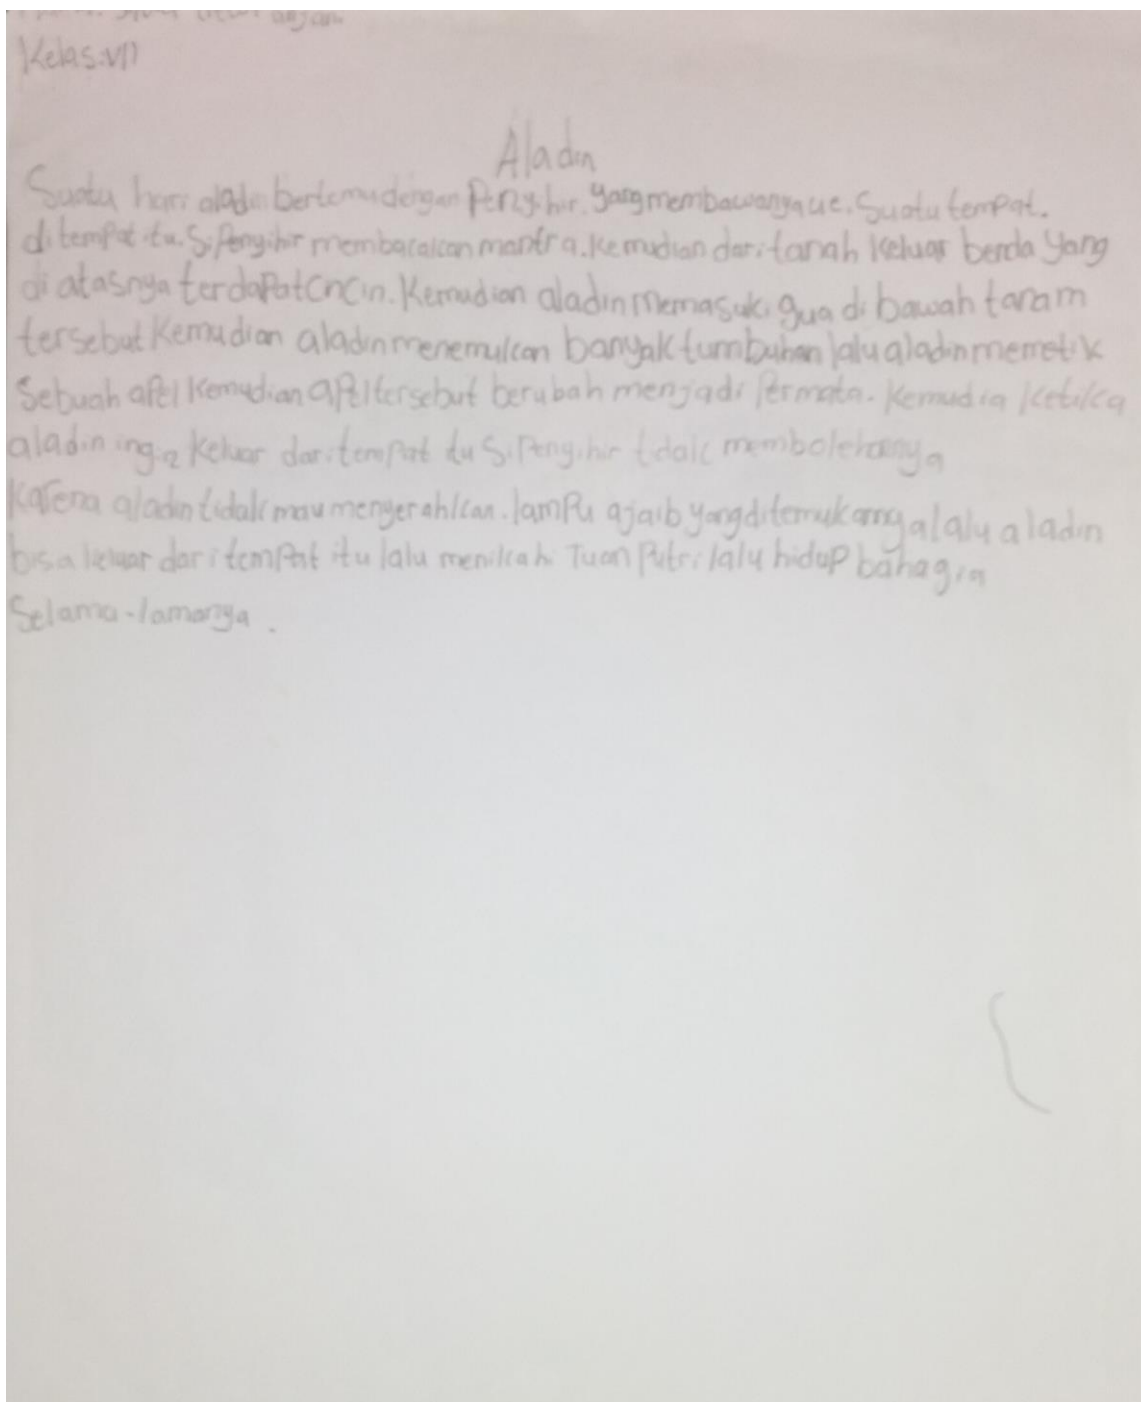 Kelas:VII
Aladin
Suatu hari aladin bertemu dengan Penyihir. yang membawanya ue. Suatu tempat.
ditempat itu. Si Penyihir membacakan mantra. Kemudian dari tanah Keluar benda yang
di atasnya terdapat cncin. Kemudian aladin memasuki gua di bawah tanam
tersebut Kemudian aladin menemukan banyak tumbuhan lalu aladin memetik
Sebuah apel Kemudian apel tersebut berubah menjadi Permata. Kemudia Ketika
aladin ingin Keluar dari tempat itu Si Penyihir tidak membolehannya
Karena aladin tidak mau menyerahkan. lampu ajaib yang ditemukannya lalu aladin
bisa keluar dari tempat itu lalu menikahi Tuan Putri lalu hidup bahagia
Selama-lamanya.